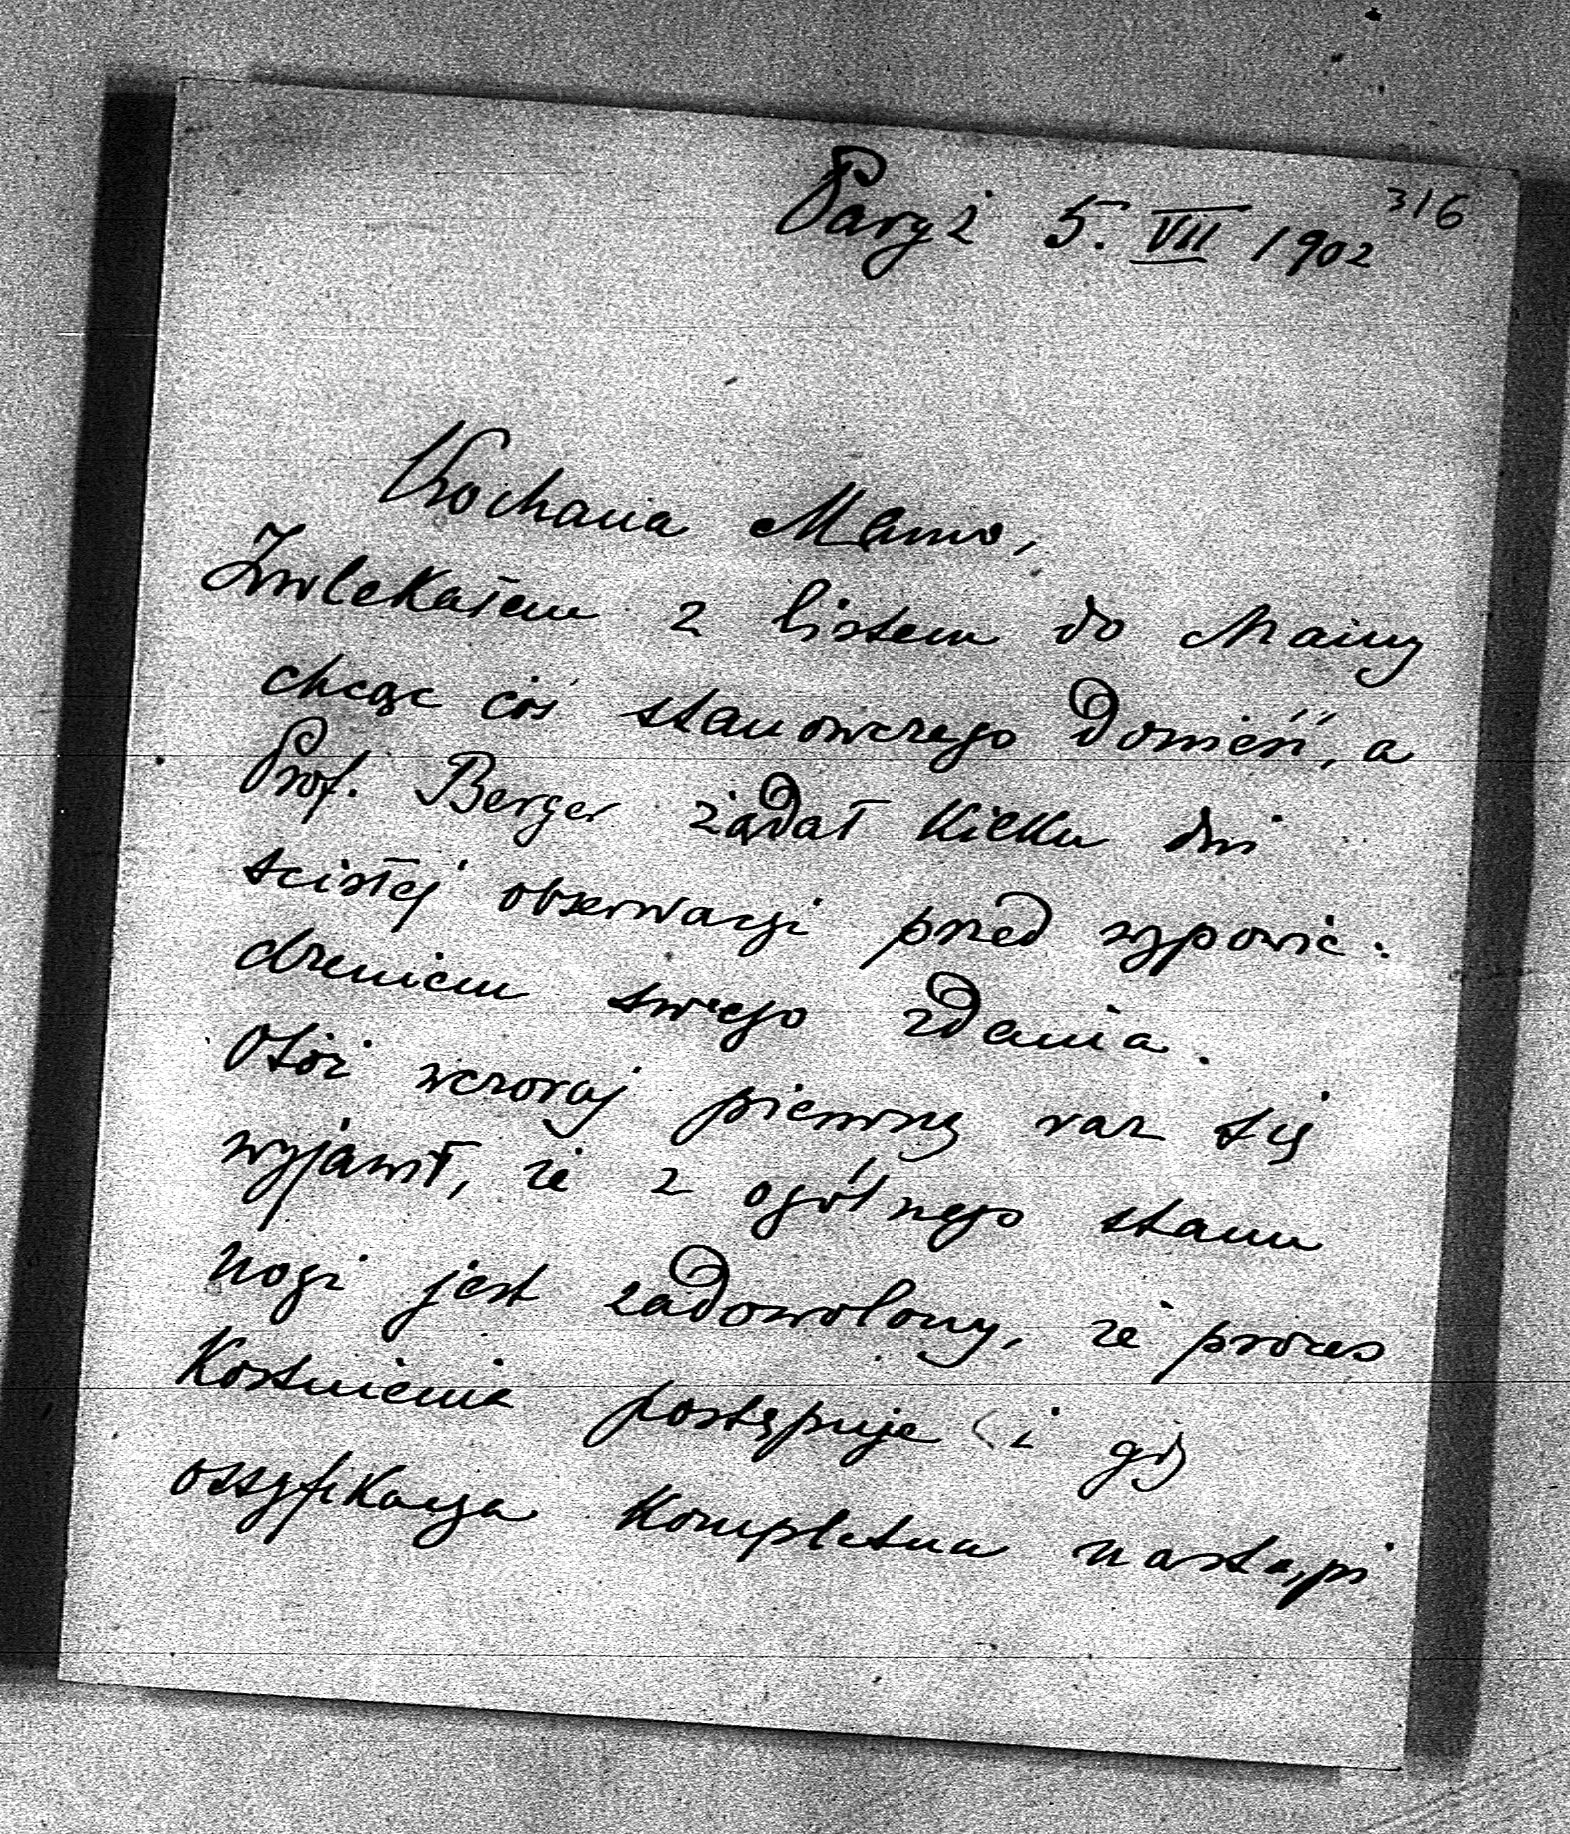 316
Paryż 5. VII 1902
Kochana Mamo,
Zwlekałem z listem do Mamy
chcąc coś stanowczego donieść, a
Prof. Berger żądał kilku dni
scisłej obserwacji przed wypowie:
dzeniem swego zdania.
Otóż wczoraj pierwszy raz się
wyjawił, że z ogólnego stanu
nogi jest zadowolony, że proces
kostnienia postępuje i gdy
ossyfikacya kompletna nastąpi